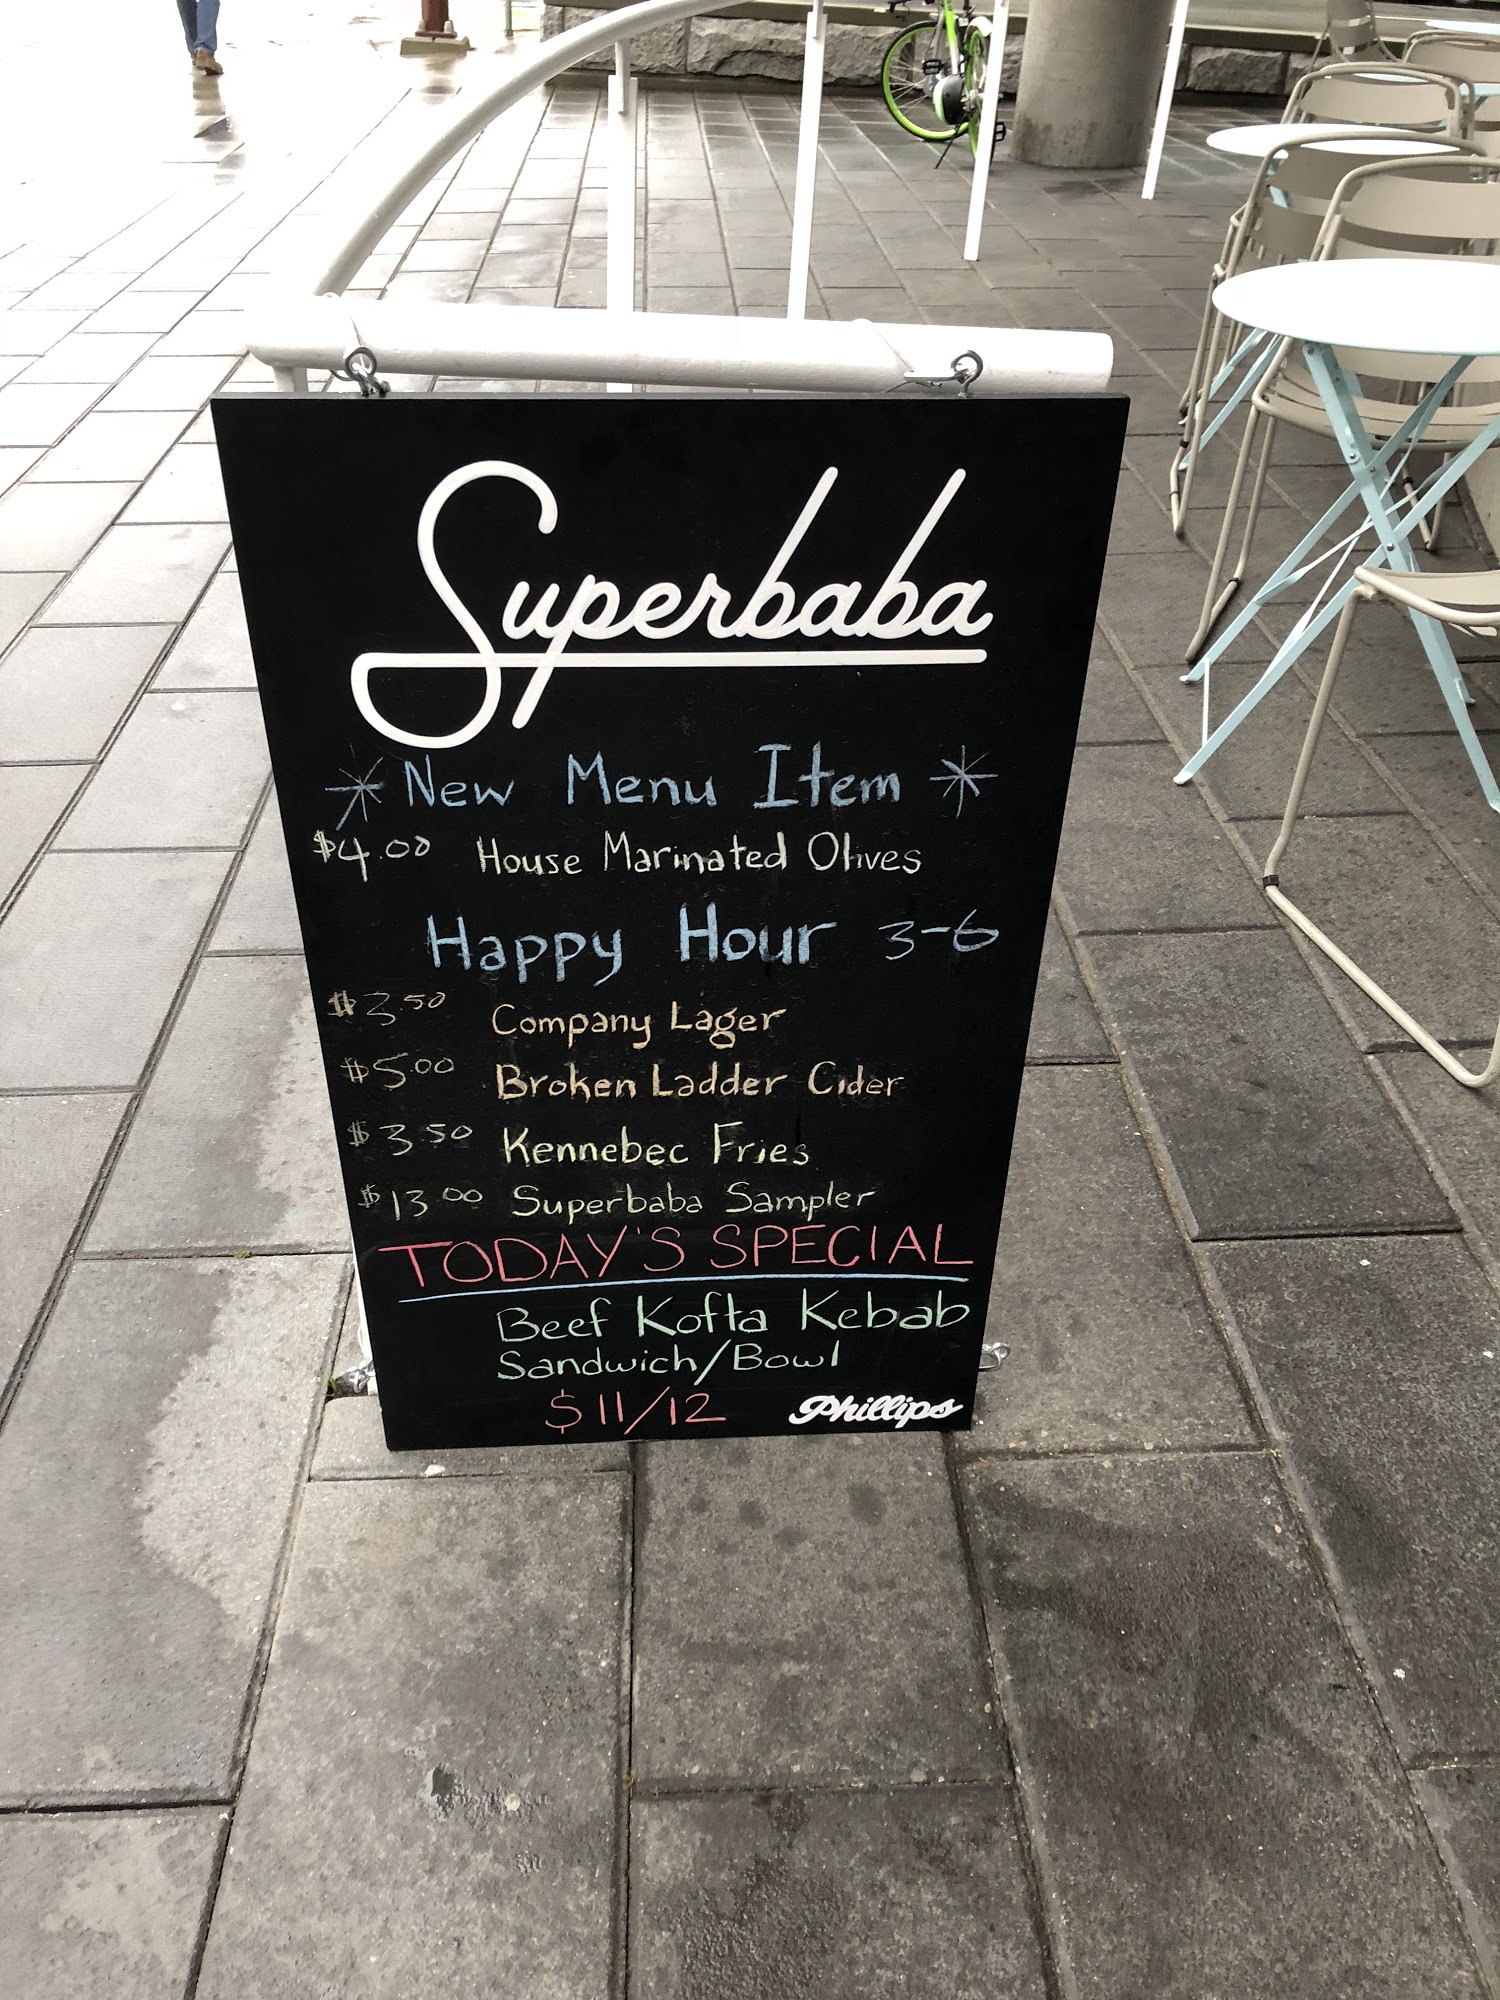 Superbaba
New Menu Item
$4.00 House Marinated Olives
Happy Hour 3-6
$3.50 Company Lager
$5.00 Broken Ladder Cider
$3.50 Kennebec Fries
$13.00 Superbaba Sampler
TODAY'S SPECIAL
Beef Kofta Kebab
Sandwich/Bowl
$11/12
Phillips